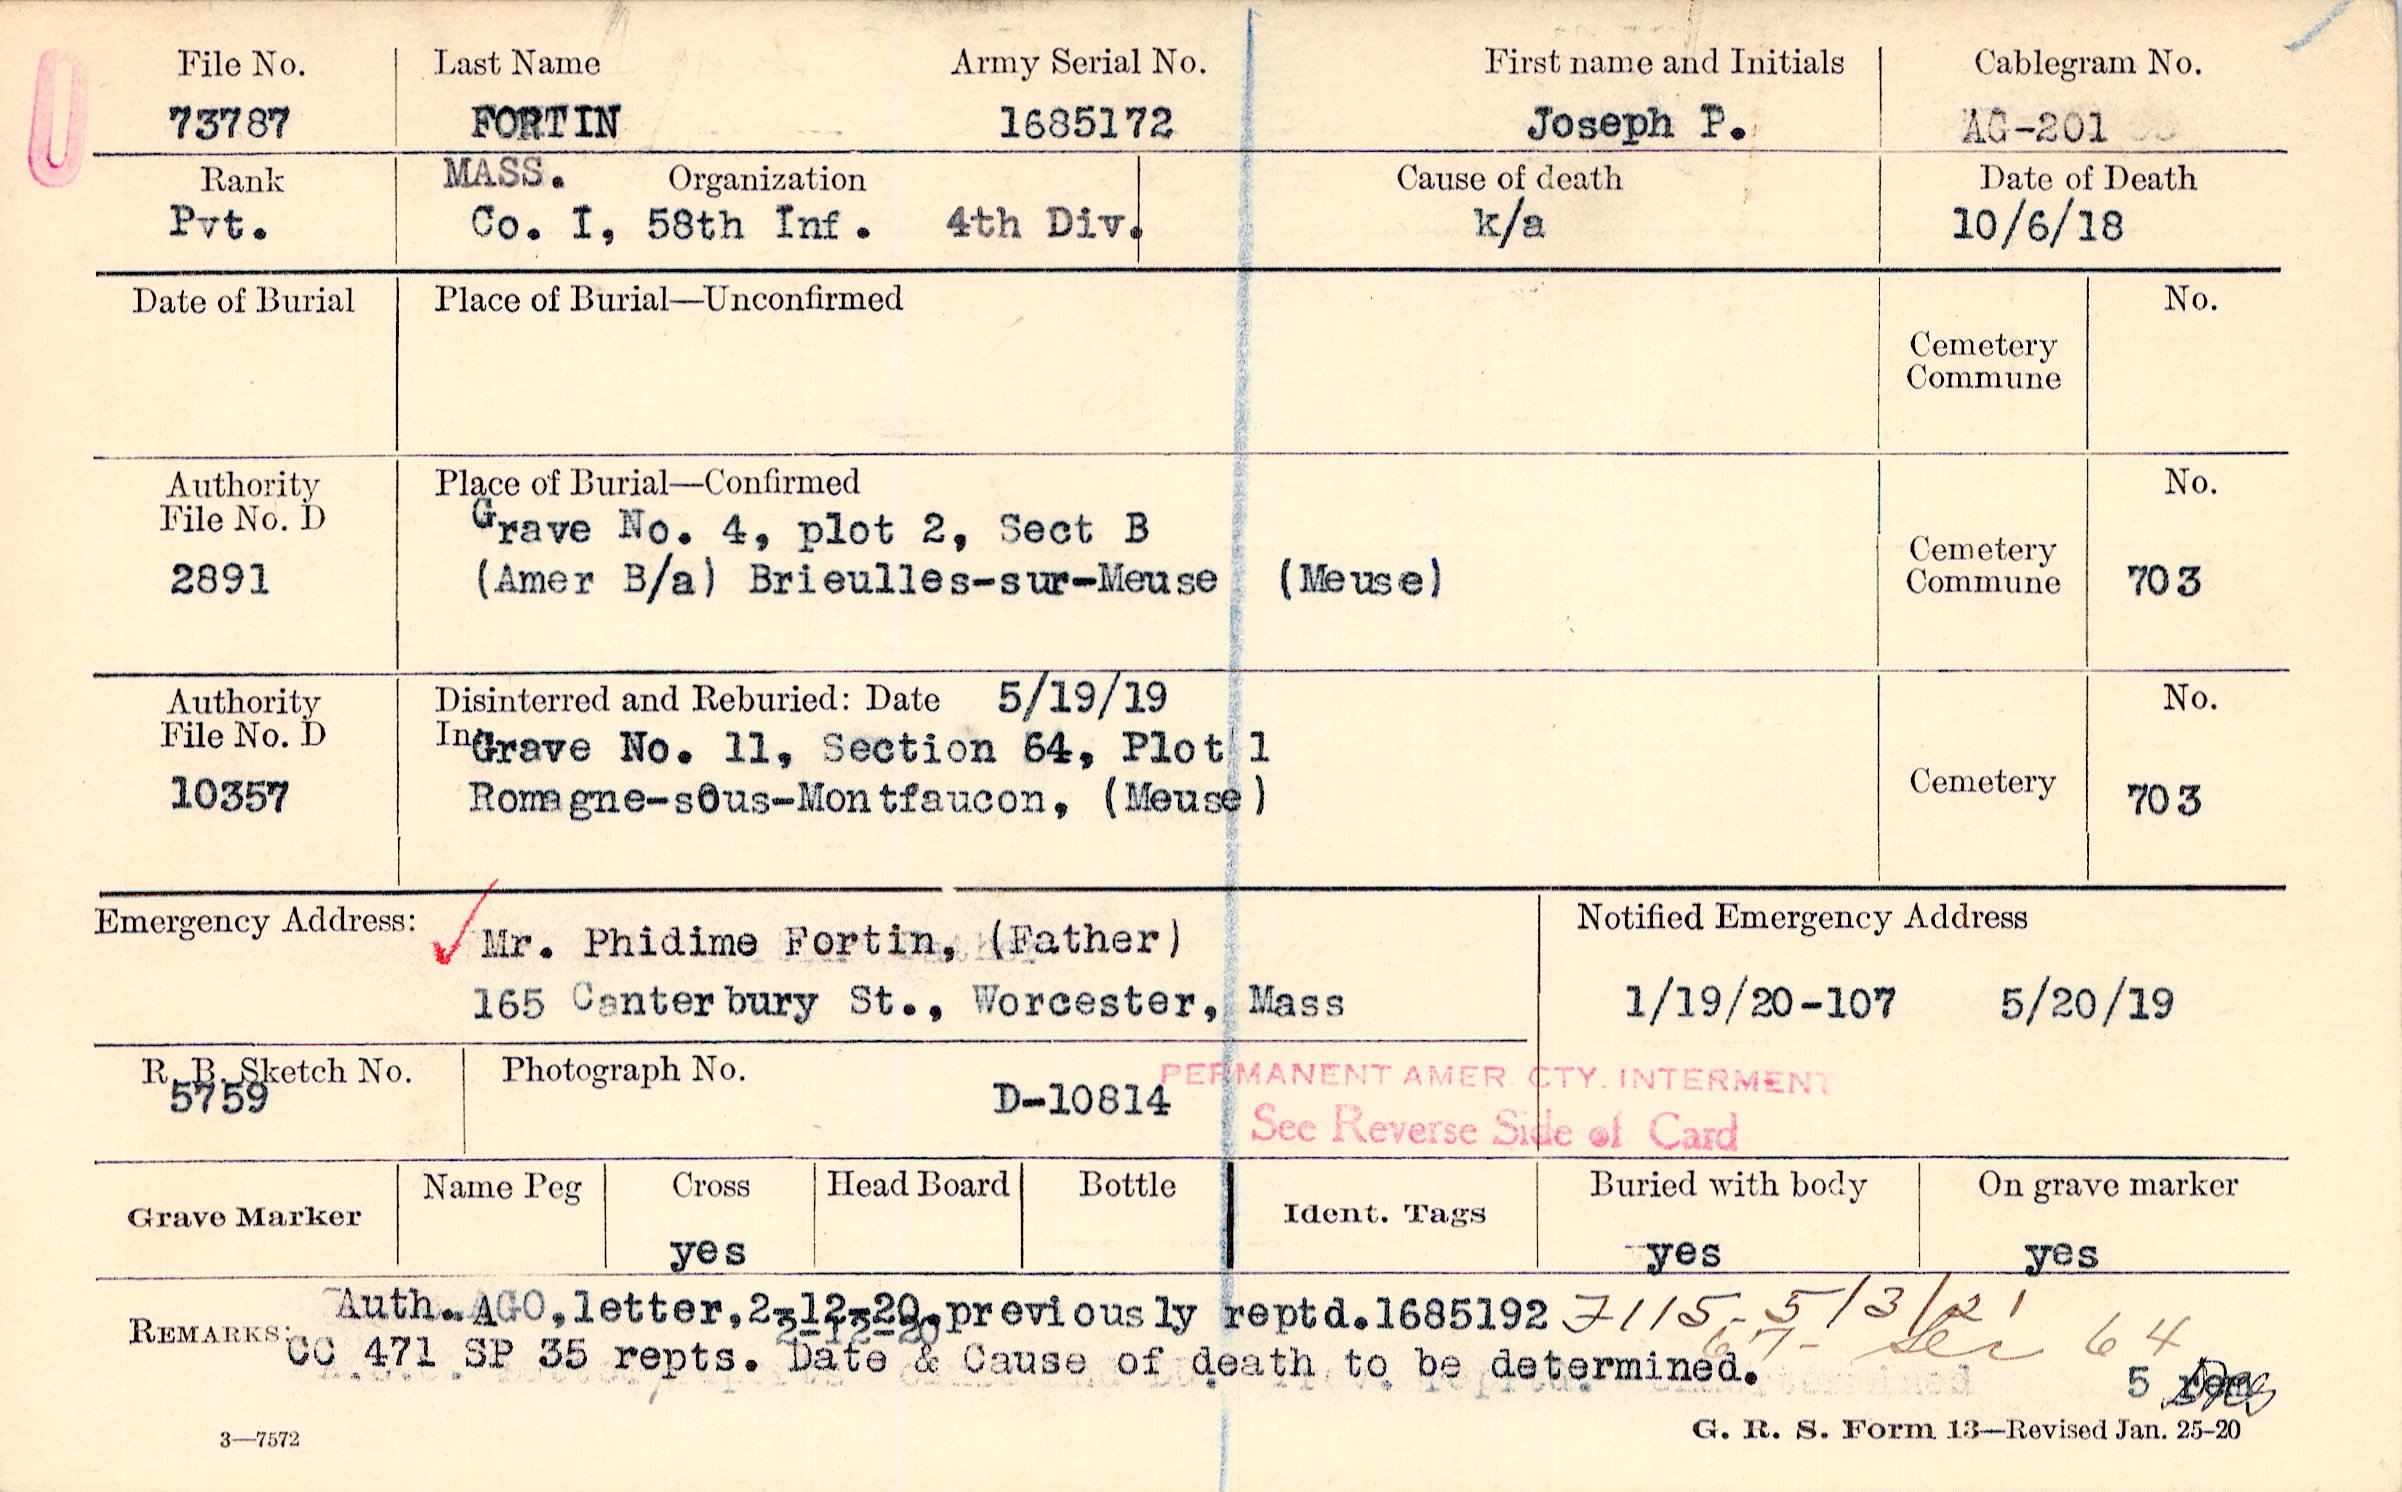 File No. Last Name Army Serial No. First name and Initials Cablegram No.
73787 FORTIN 1685172 Joseph P. AG-201
Rank MASS. Organization Cause of death Date of Death
Pvt. Co. I, 58th Inf. 4th Div. k/a 10/6/18
Date of Burial Place of Burial—Unconfirmed No.
Cemetery
Commune
Authority Place of Burial—Confirmed No.
File No. D Grave No. 4, plot 2, Sect B
Cemetery
2891 (Amer B/a) Brieulles-sur-Meuse (Meuse) Commune 703
Authority Disinterred and Reburied: Date 5/19/19 No.
File No. D In Grave No. 11, Section 64, Plot 1
10357 Romagne-sous-Montfaucon, (Meuse) Cemetery 703
Emergency Address: Notified Emergency Address
Mr. Phidime Fortin, (Father)
165 Canterbury St., Worcester, Mass 1/19/20-107 5/20/19
R. B. Sketch No. Photograph No. PERMANENT AMER. CTY. INTERMENT
5759 D-10814
See Reverse Side of Card
Grave Marker Name Peg Cross Head Board Bottle Ident. Tags Buried with body On grave marker
yes yes yes
REMARKS: Auth. AGO, letter, 2-12-20, previously reptd. 1685192 7115- 5/3/21
64
CC 471 SP 35 repts. Date & Cause of death to be determined.
5
3—7572 G. R. S. Form 13—Revised Jan. 25-20